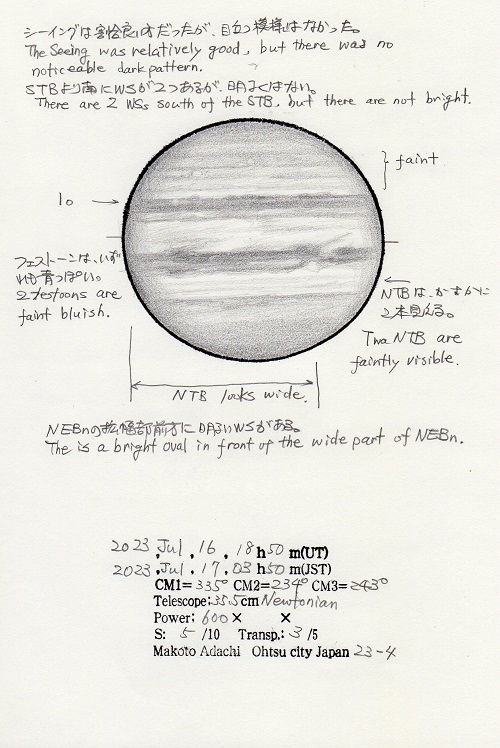 シーイングは割合良い方だったが、目立つ模様はなかった。
The Seeing was relatively good, but there was no
noticeable dark pattern.
STBより南にWSが2つあるが、明るくはない。
There are 2 WSs south of the STB, but there are not bright.
faint
Io
フェストーンは、いず
れも青っぽい。
2 festoons are
faint bluish.
NTBは、かすかに
2本見える。
Two NTB are
faintly visible.
NTB looks wide.
NEBnの拡幅部前方に明るいWSがある。
The is a bright oval in front of the wide part of NEBn.
2023, Jul, 16, 18 h 50 m(UT)
2023, Jul, 17, 03 h 50 m(JST)
CM1= 335° CM2= 234° CM3= 243°
Telescope; 35.5cm Newtonian
Power: 600 × ×
S: 5 /10 Transp.: 3 /5
Makoto Adachi Ohtsu city Japan 23-4